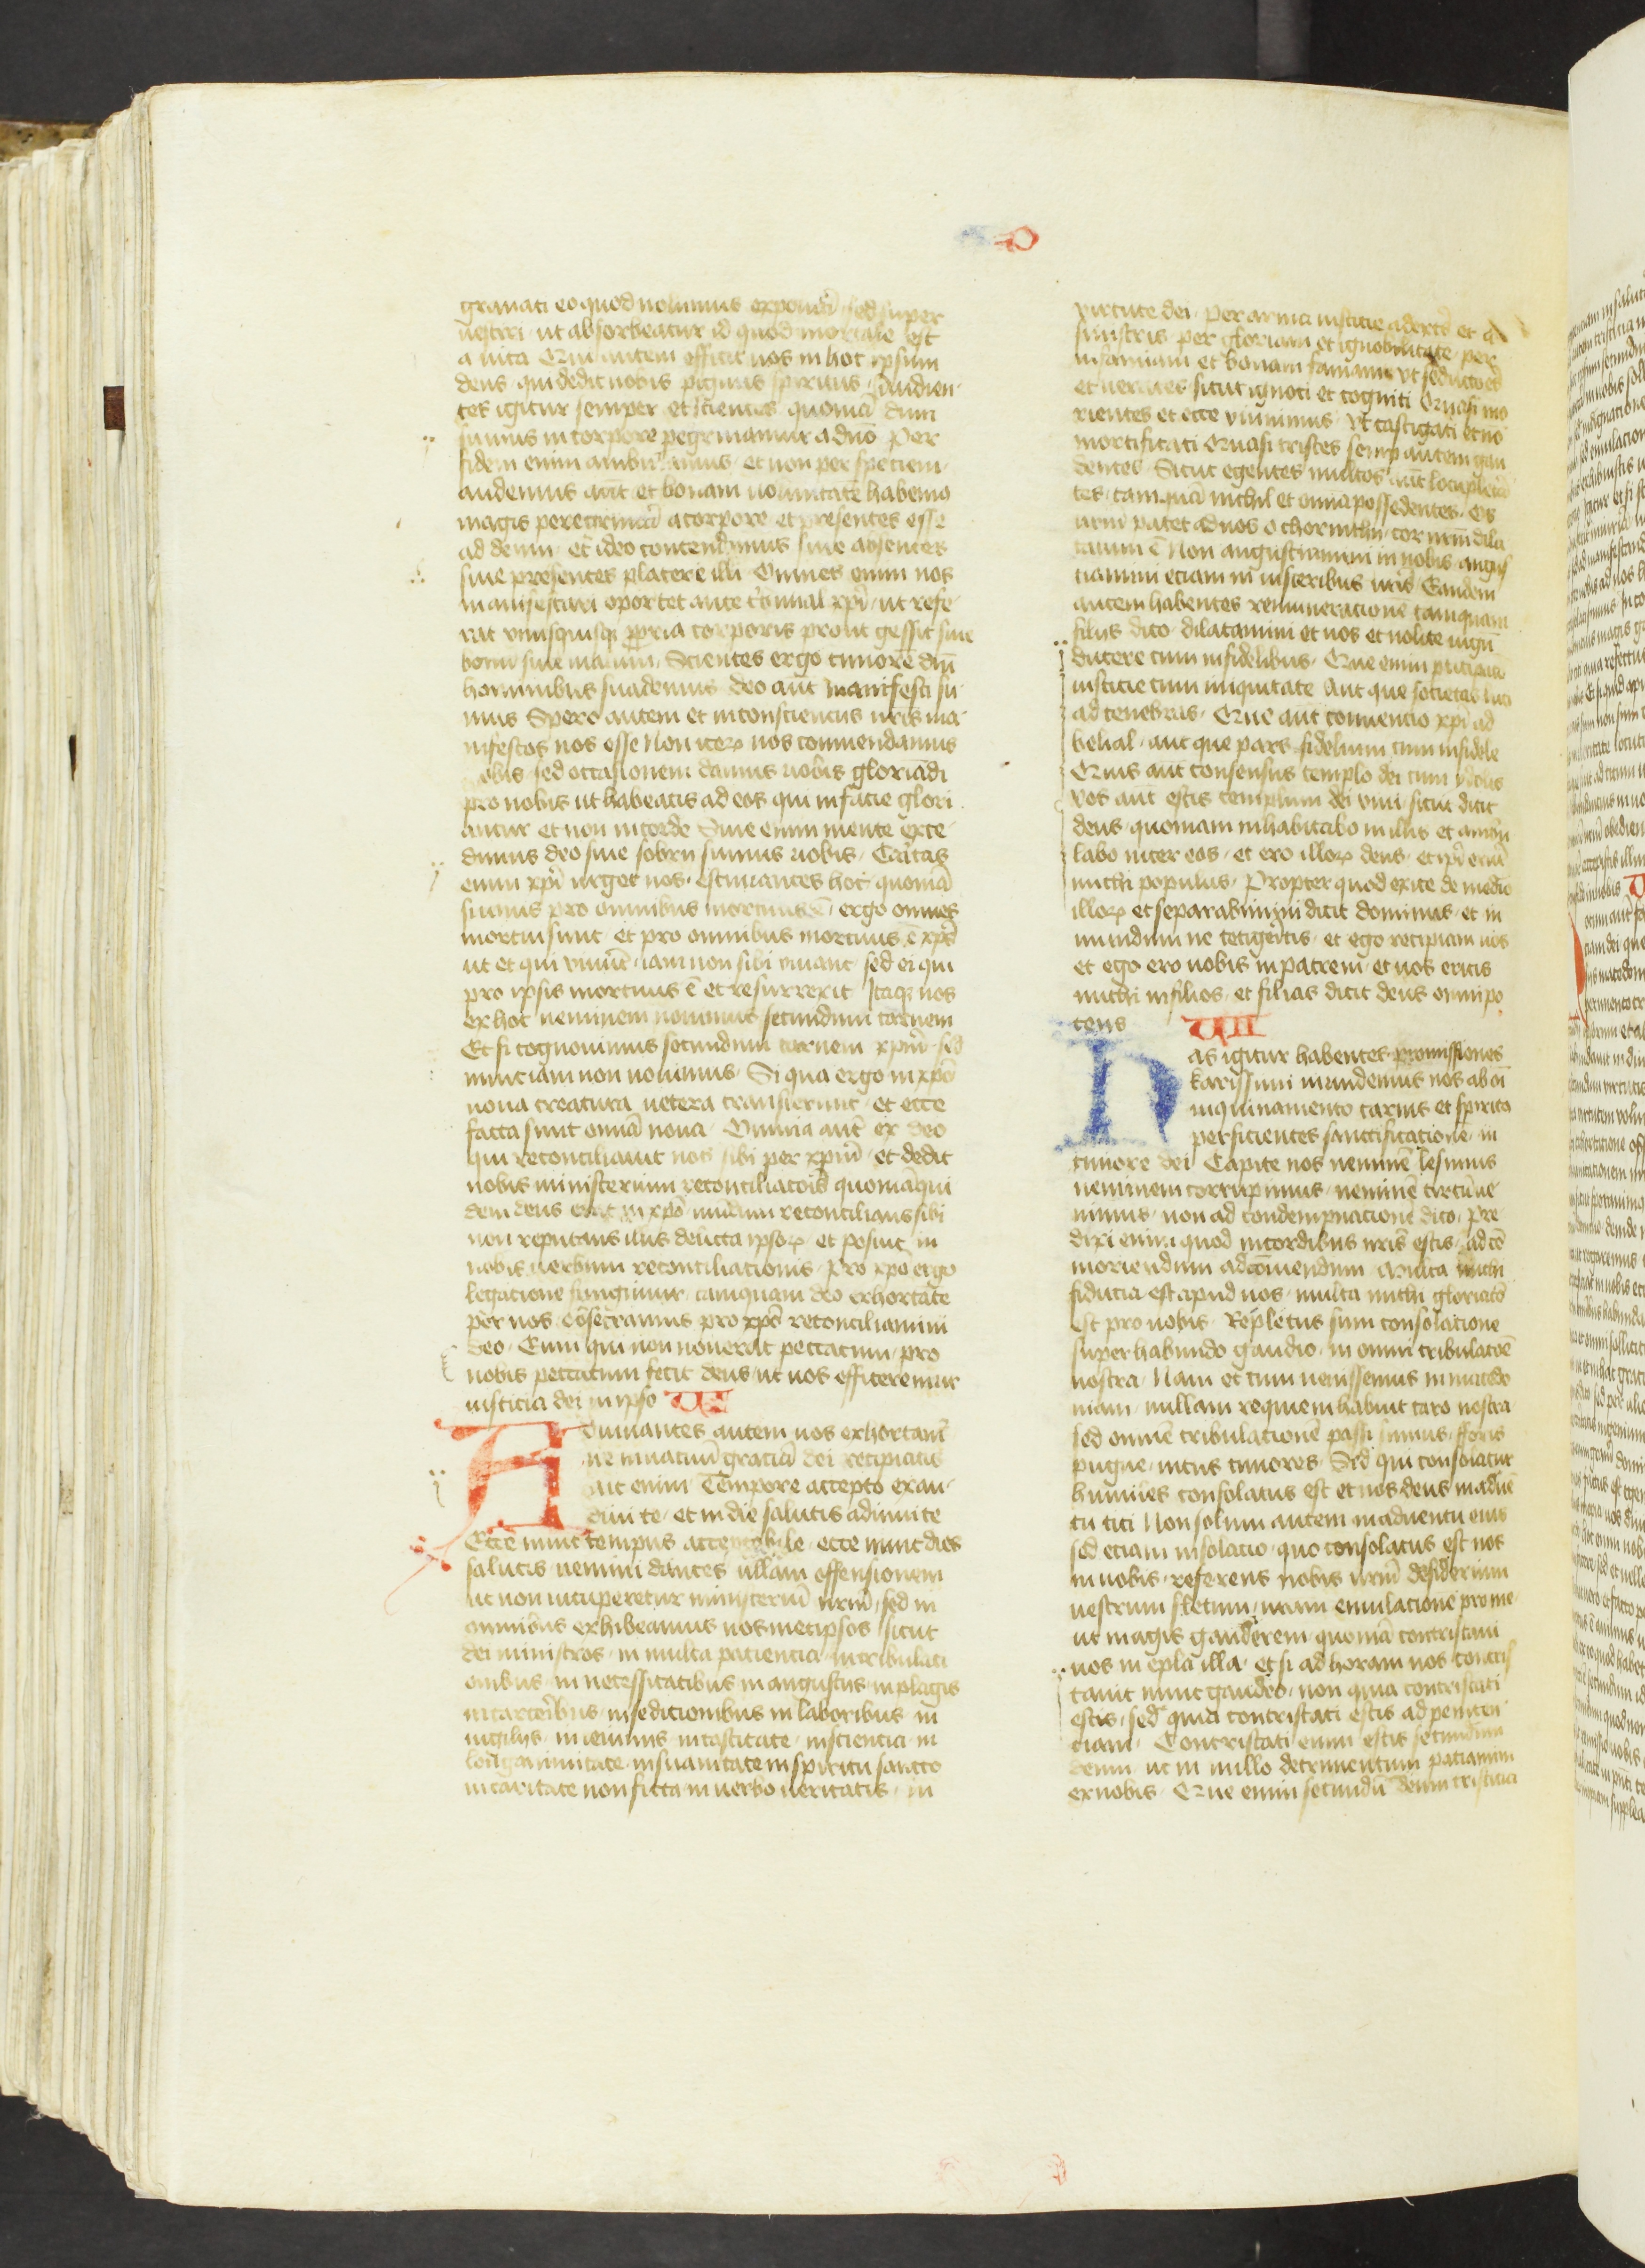 grauati eo quod nolumus expoliari sed super
uestiri · ut absorbeatur id quod mortale est
a uita Qui autem efficit nos in hoc ipsum
deus · qui dedit nobis pignus spiritus · Audien-
tes igitur semper et scientes quoniā dum
sumus in corpore pegrinamur a dn̄o Per
fidem enim ambulamus · et non per speciem ·
audemus aūt et bonam uoluntatē habemus
magis peregrinari a corpore et presentes esse
ad deum · et ideo contendimus siue absentes
siue presentes placere illi · Omnes enim nos
manifestari oportet ante tribunal xp̄i · ut refe-
rat vnusquisq propria corporis prout gessit siue
bonū siue malum · Scientes ergo timorē dn̄i
hominibus suademus deo aūt manifesti su-
mus Spero autem et in conscientiis ur̄is ma-
nifestos nos esse Non iterū nos commendamus
uobis sed occasionem damus uobis gloriādi
pro nobis ut habeatis ad eos qui in facie glori
antur et non in corde Siue enim mente exce-
dimus deo siue sobrii sumus uobis · Caritas
enim xp̄i urget nos · estimantes hoc quoniā
si unus pro omnibus mortuus ē · ergo omnes
mortui sunt · et pro omnibus mortuus ē xp̄s
ut et qui viuūt · iam non sibi viuant sed ei qui
pro ipsis mortuus ē et resurrexit Itaq nos
ex hoc neminem nouimus secundum carnem
Et si cognouimus secundum carnem xp̄m · sed
nunc iam non nouimus · Si qua ergo in xp̄o
noua creatura uetera transierunt · et ecce
facta sunt omā noua · Omnia aūt ex deo
qui reconciliauit nos sibi per xp̄m · et dedit
nobis ministerium reconciliatōis quoniā qui
dem deus erat in xp̄o mundum reconcilians sibi
non reputans illis delicta ipsorū et posuit in
nobis uerbum reconciliationis · Pro xp̄o ergo
legatione fungimur tamquam deo exhortāte
per nos · obsecramus pro xp̄o reconciliamini
deo · Eum qui non nouerat peccatum · pro
nobis peccatum fecit deus · ut nos efficeremur
iusticia dei in ipso VI
Adiuuantes autem uos exhortam̄
ne in uacuū graciā dei recipiatis
Ait enim Tempore accepto exau-
diui te · et in die salutis adiuui te
Ecce nunc tempus acceptabile · ecce nunc dies
salutis · nemini dantes ullam offensionem
ut non uituperetur ministeriū nr̄m · sed in
omnibus exhibeamus nosmetipsos sicut
dei ministros · in multa paciencia · in tribulati
onibus · in necessitatibus in angustiis · in plagis
in carceribus · in sedicionibus in laboribus · in
uigiliis · in ieiuniis in castitate · in sciencia · in
longanimitate · in suauitate in spiritu sancto
in caritate non ficta in uerbo ueritatis · in
virtute dei · per arma iusticie a dextris et a
sinistris · per gloriam et ignobilitate · per
infamiam et bonam famam vt seductores
et ueraces sicut ignoti et cogniti Quasi mo
rientes et ecce viuimus · Vt castigati et nō
mortificati Quasi tristes semp autem gau
dentes · Sicut egentes multos aūt locupletā
tes · tamquā nichil et omnia possedentes · Os
nr̄m patet ad uos o chorinthii · cor nr̄m dila
tatum ē Non angustiamini in nobis · angus
tiamini etiam in uisceribus ur̄is Eandem
autem habentes remuneracionē tamquam
filiis dico · dilatamini et uos et nolite iugū
ducere cum infidelibus · Que enim participatio
iusticie cum iniquitate Aut que societas luci
ad tenebras · Que aūt conuencio xp̄i ad
belial · aut que pars fidelium cum infidele
Quis aūt consensus templo dei cum ydolis
Vos aūt estis templum dei viui · sicut dicit
deus · quoniam inhabitabo in illis et ambu
labo inter eos · et ero illorū deus · et ip̄i erūt
michi populus · Propter quod exite de medio
illorū et separabimini dicit dominus · et in
mundum ne tetigeritis · et ego recipiam uos
et ego ero uobis in patrem · et uos eritis
michi in filios · et filias dicit deus omnipo
tens VII
Has igitur habentes promissiones
karissimi mundemus nos ab oī
inquinamento carnis et spiritus
perficientes sanctificatione · in
timore dei Capite nos neminē lesimus
neminem corrupimus · neminē circūue
nimus · non ad condempnacionē dico · Pre
dixi enim quod in cordibus nr̄is estis · ad cō
moriendum ad cōuiuendum Multa michi
fiducia est apud uos · multa michi gloriatō
est pro uobis · Repletus sum consolatione
superhabundo gaudio · in omni tribulatōe
nostra · Nam et cum uenissemus in macedo
niam · nullam requiem habuit caro nostra
sed omnē tribulationē passi sumus · fforis
pugne · intus timores · Sed qui consolatur
humiles consolatus est et nos deus in aduē
tu titi Non solum autem in aduentu eius
sed etiam in solacio · quo consolatus est nos
in uobis · referens nobis ur̄m desiderium
uestrum fletum · uram emulacionē pro me
ut magis gauderem · quoniā contristaui
uos in epl̄a illa · et si ad horam uos contris
tauit nunc gaudeo · non quia contristati
estis · sed quia contristati estis ad peniten
ciam · Contristati enim estis secundum
deum · ut in nullo detrimentum patiamini
ex nobis · Que enim secundū deum tristicia